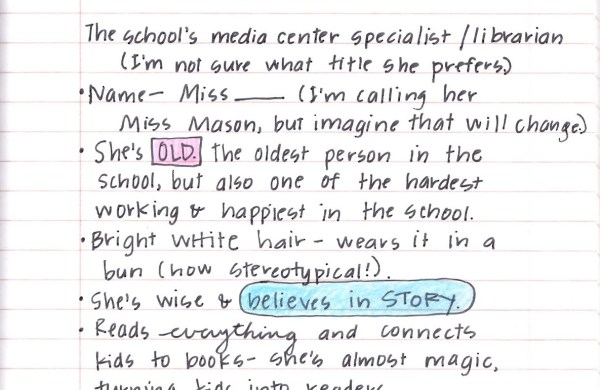 The school's media center specialist/librarian
(I'm not sure what title she prefers)
• Name – Miss ____ (I'm calling her
Miss Mason, but imagine that will change.)
• She's OLD. The oldest person in the
school, but also one of the hardest
working & happiest in the school.
• Bright white hair – wears it in a
bun (how stereotypical!).
• She's wise & believes in STORY.
• Reads everything and connects
kids to books – she's almost magic,
turning kids into readers